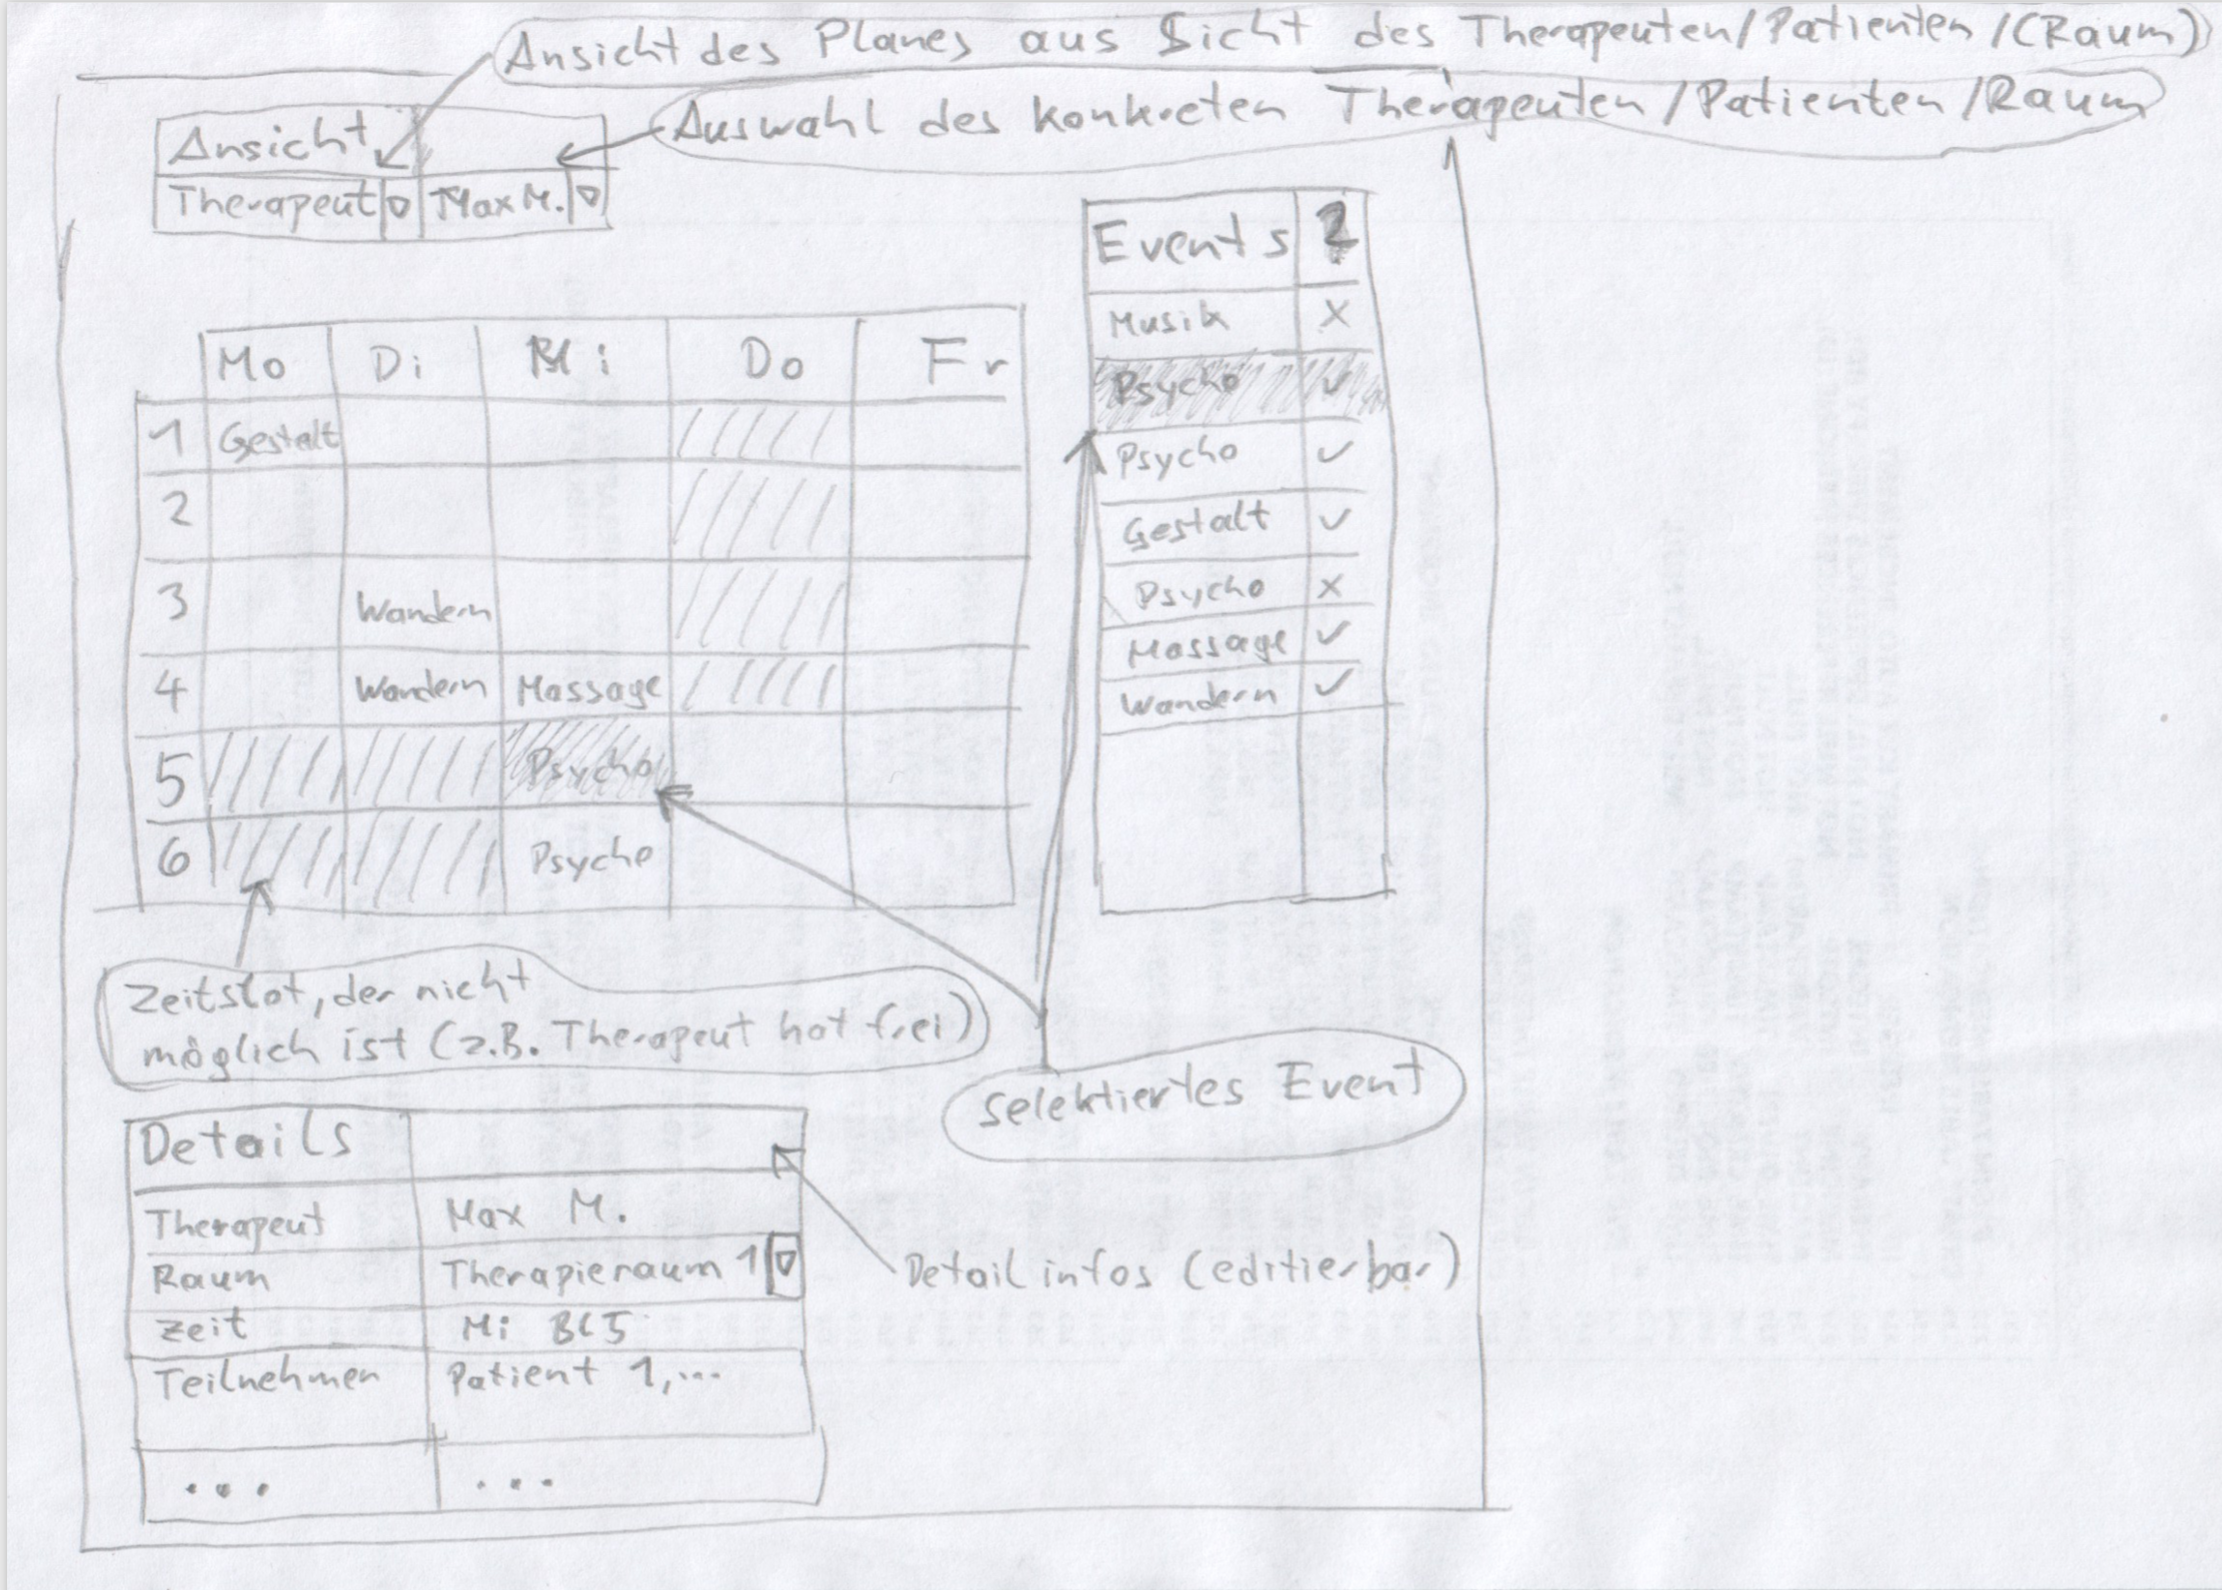 Ansicht des Planes aus Sicht des Therapeuten/Patienten/(Raum)
Auswahl des konkreten Therapeuten/Patienten/Raum
Ansicht
Therapeut Max M.
Events ?
Musik x
Psycho ✓
Psycho ✓
Gestalt ✓
Psycho x
Massage ✓
Wandern ✓
Mo Di Mi Do Fr
1 Gestalt
2
3 Wandern
4 Wandern Massage
5 Psycho
6 Psycho
Zeitslot, der nicht
möglich ist (z.B. Therapeut hat frei)
selektiertes Event
Details
Therapeut Max M.
Raum Therapieraum 1
Zeit Mi Bl5
Teilnehmen Patient 1,...
... ...
Detailinfos (editierbar)